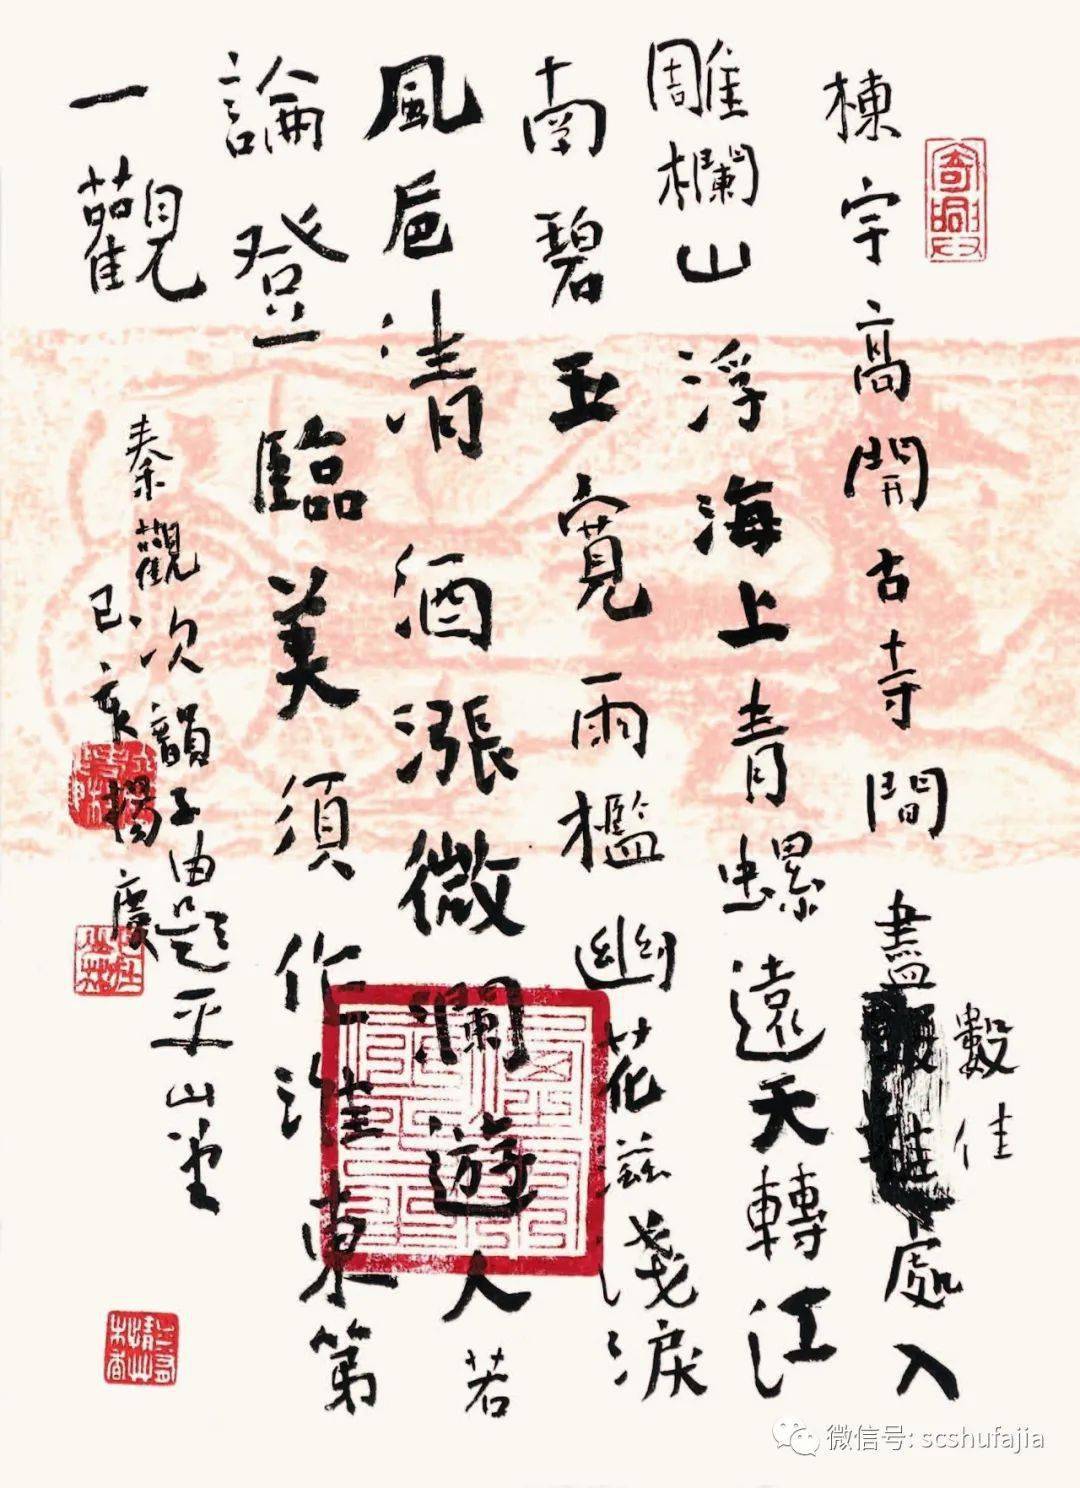 棟宇高開古寺間盡數佳處入
雕欄山浮海上青螺遠天轉江
南碧玉寬雨檻幽花滋淺淚
風卮清酒漲微瀾遊人若
論登臨美須作淮東第
一觀
秦觀次韻子由題平山堂
己亥楊慶
微信号: scshufajia